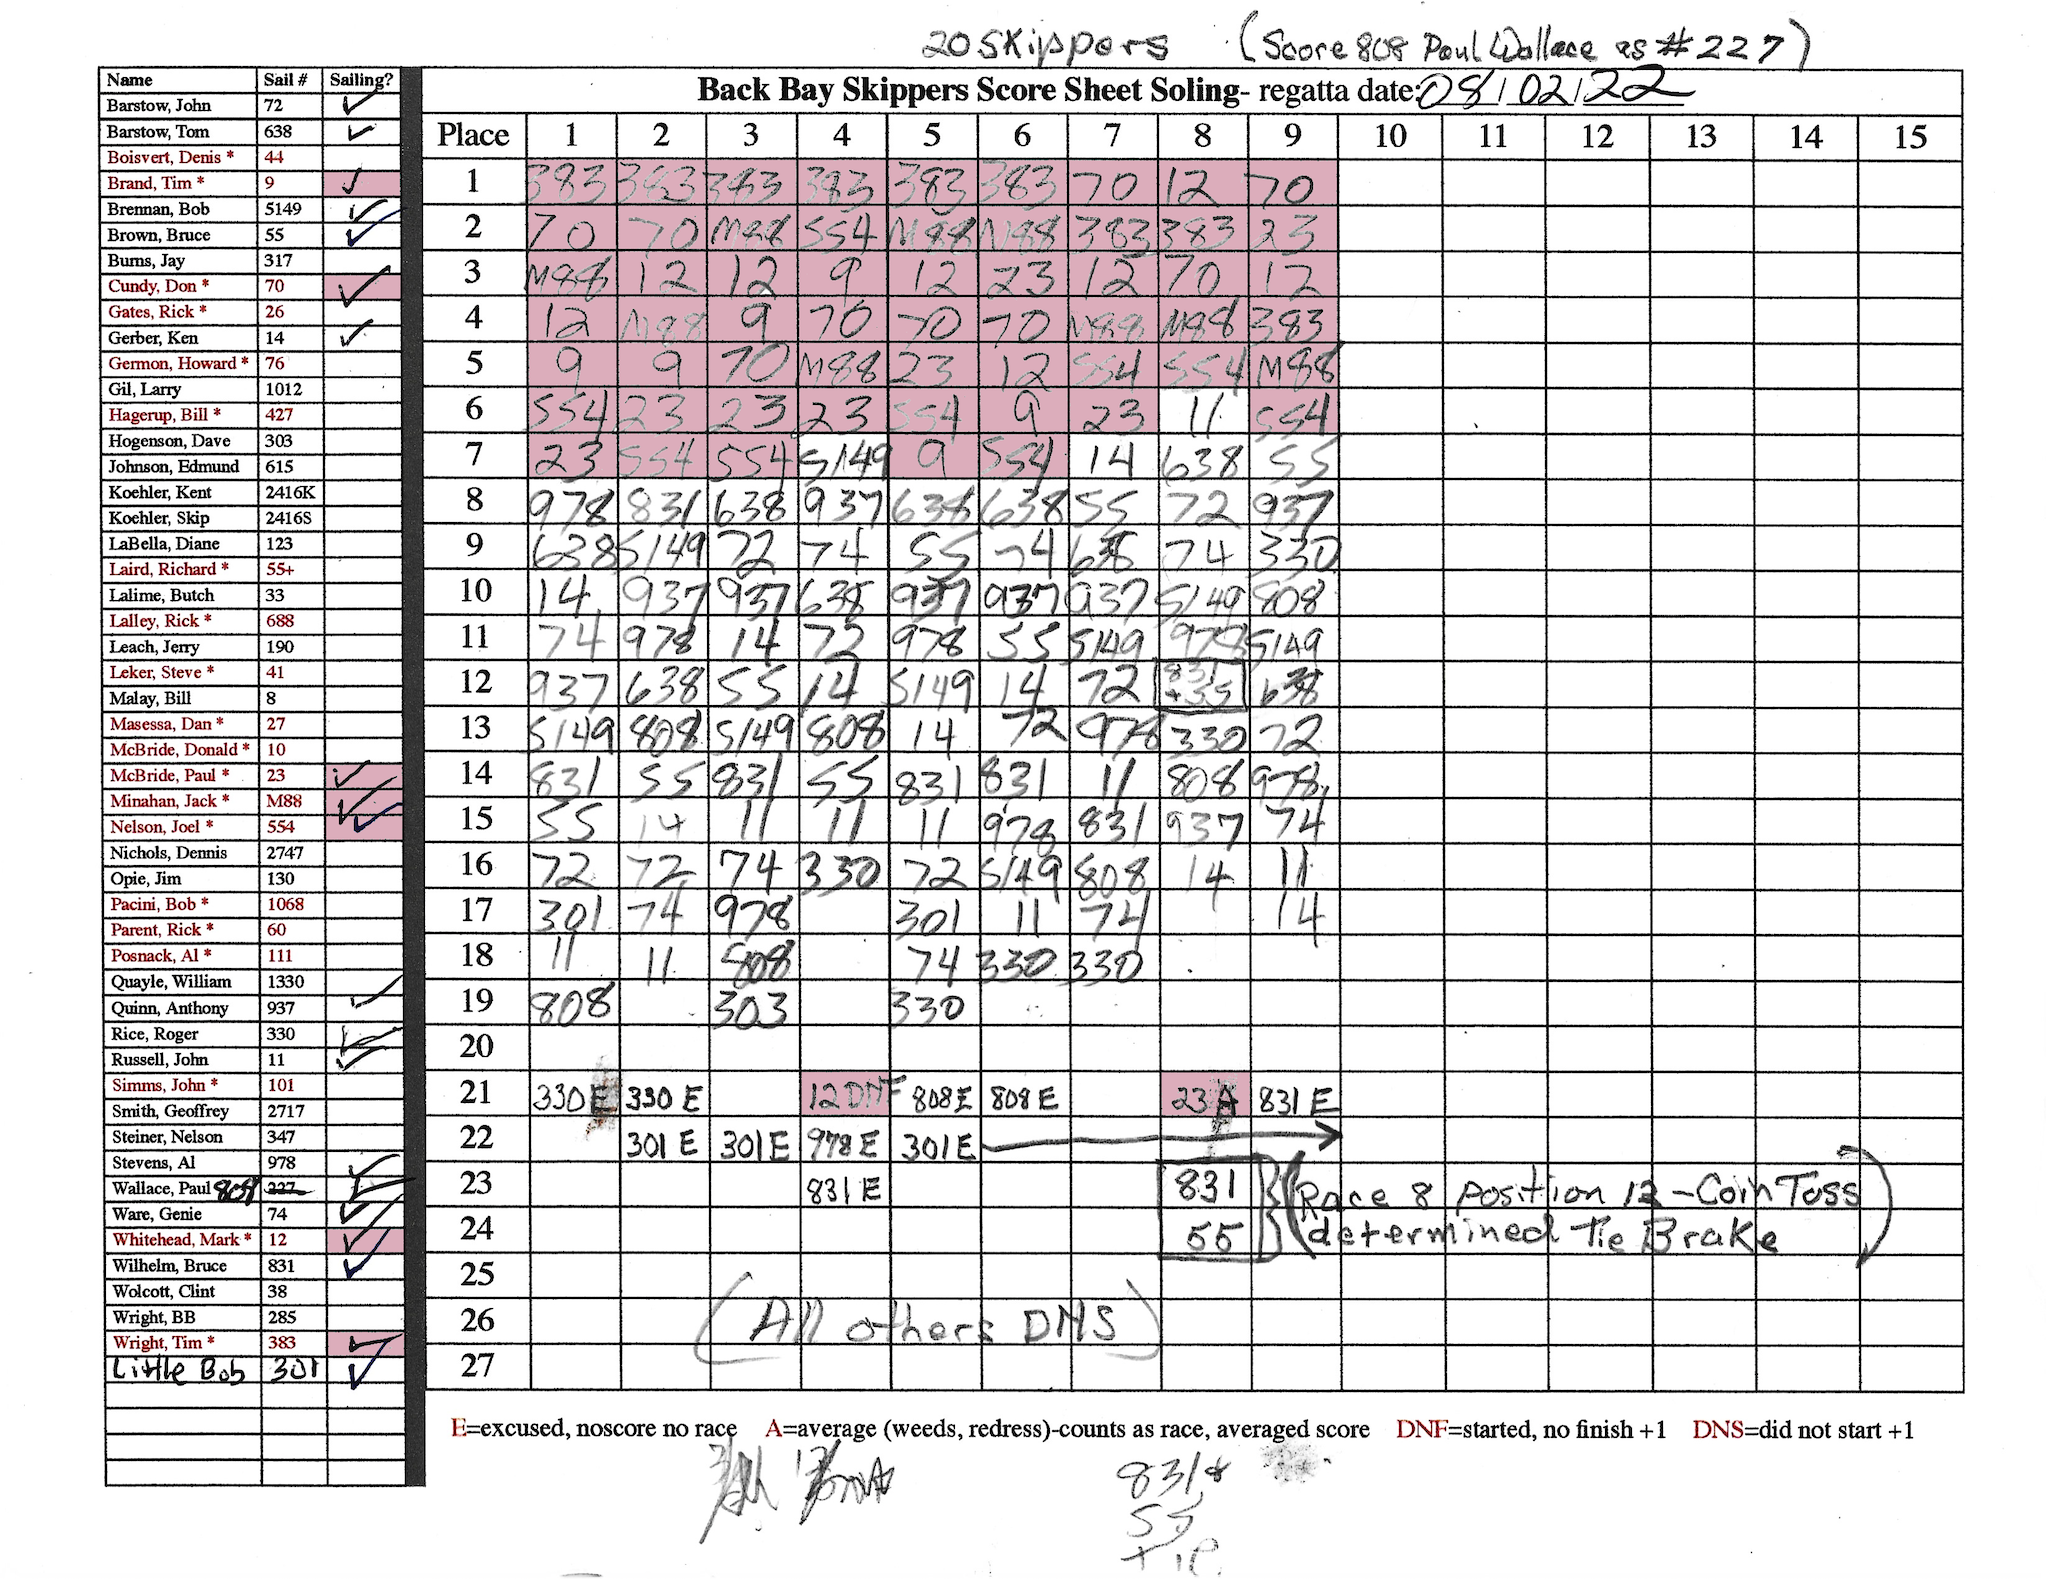 20 Skippers (Score 808 Paul Wallace as # 227)
Name Sail # Sailing?
Back Bay Skippers Score Sheet Soling- regatta date: 08/02/22
Barstow, John 72 ✓
Barstow, Tom 638 ✓
Boisvert, Denis * 44
Brand, Tim * 9 ✓
Brennan, Bob 5149 ✓
Brown, Bruce 55 ✓
Burns, Jay 317
Cundy, Don * 70 ✓
Gates, Rick * 26
Gerber, Ken 14 ✓
Germon, Howard * 76
Gil, Larry 1012
Hagerup, Bill * 427
Hogenson, Dave 303
Johnson, Edmund 615
Koehler, Kent 2416K
Koehler, Skip 2416S
LaBella, Diane 123
Laird, Richard * 55+
Lalime, Butch 33
Lalley, Rick * 688
Leach, Jerry 190
Leker, Steve * 41
Malay, Bill 8
Masessa, Dan * 27
McBride, Donald * 10
McBride, Paul * 23 ✓
Minahan, Jack * M88 ✓
Nelson, Joel * 554 ✓
Nichols, Dennis 2747
Opie, Jim 130
Pacini, Bob * 1068
Parent, Rick * 60
Posnack, Al * 111
Quayle, William 1330
Quinn, Anthony 937 ✓
Rice, Roger 330 ✓
Russell, John 11 ✓
Simms, John * 101
Smith, Geoffrey 2717
Steiner, Nelson 347
Stevens, Al 978 ✓
Wallace, Paul 808 227 ✓
Ware, Genie 74 ✓
Whitehead, Mark * 12 ✓
Wilhelm, Bruce 831 ✓
Wolcott, Clint 38
Wright, BB 285
Wright, Tim * 383 ✓
Little Bob 301 ✓
Place 1 2 3 4 5 6 7 8 9 10 11 12 13 14 15
1 383 383 383 383 383 383 70 12 70
2 70 70 M88 554 M88 M88 383 383 23
3 M88 12 12 9 12 23 12 70 12
4 12 M88 9 70 70 70 M88 M88 383
5 9 9 70 M88 23 12 554 554 M88
6 554 23 23 23 554 9 23 11 554
7 23 554 554 5149 9 554 14 638 55
8 978 831 638 937 638 638 55 72 937
9 638 5149 72 74 55 74 638 74 330
10 14 937 937 638 937 937 937 5149 808
11 74 978 14 72 978 55 5149 978 5149
12 937 638 55 14 5149 14 72 831 + 55 638
13 5149 808 5149 808 14 72 978 330 72
14 831 55 831 55 831 831 11 808 978
15 55 14 11 11 11 978 831 937 74
16 72 72 74 330 72 5149 808 14 11
17 301 74 978 301 11 74 14
18 11 11 808 74 330 330
19 808 303 330
20
21 330 E 330 E 12 DNF 808 E 808 E 23 A 831 E
22 301 E 301 E 978 E 301 E
23 831 E 831 (Race 8 position 12 - Coin Toss
24 55 determined Tie Brake)
25
26 (All others DNS)
27
E=excused, noscore no race A=average (weeds, redress)-counts as race, averaged score DNF=started, no finish +1 DNS=did not start +1
831 &
55
tie